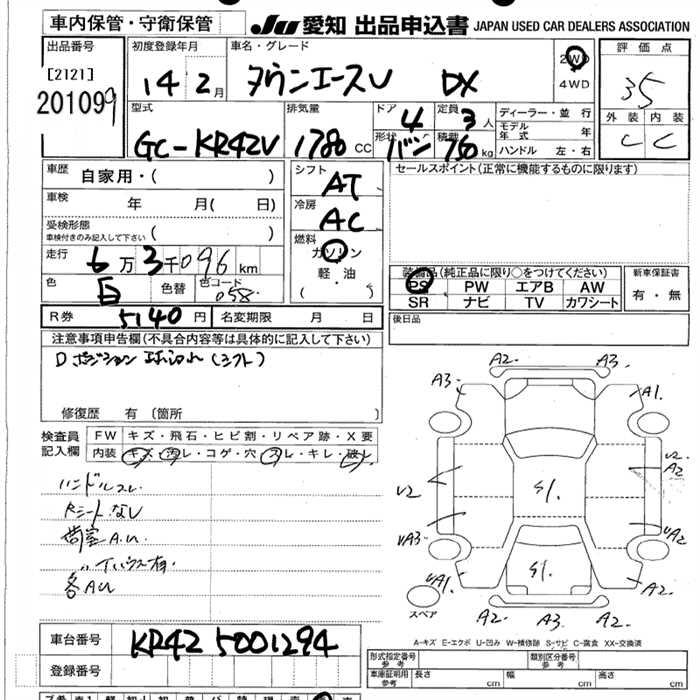 車内保管・守衛保管
JU 愛知 出品申込書 JAPAN USED CAR DEALERS ASSOCIATION
出品番号
[2121]
201099
初度登録年月
14年 2月
車名・グレード
タウンエースV DX
2WD
4WD
評価点
35
外装 内装
C C
型式
GC-KR42V
排気量
1780 CC
ドア
4
形状
バン
定員
3人
積載
750 kg
ディーラー・並行
モデル年式 年
ハンドル 左・右
車歴
自家用・( )
車検
年 月( 日)
受検形態
車検付きのみ記入して下さい
( )
走行
6万3千096km
色
白
色替
色コード
058
シフト
AT
冷房
AC
燃料
ガソリン
軽・油
( )
セールスポイント(正常に機能するものに限ります)
装備品(純正品に限り○をつけてください)
PS PW エアB AW
SR ナビ TV カワシート
新車保証書
有・無
R券 5140円 名変期限 月 日
後日品
注意事項申告欄(不具合内容等は具体的に記入して下さい)
Dポジション 球切れ(シフト)
修復歴 有 〔箇所 〕
検査員記入欄
FW キズ・飛石・ヒビ割・リペア跡・X要
内装 キズ・汚レ・コゲ・穴・スレ・キレ・破レ
ハンドルスレ
Rシートなし
荷室A.U
〃 イハウス有
各AU
A2 A3
A3 A1
V2 A2
V2 S1
UA3 UA2
UA1 S1 A2
A2 A2
スペア
A-キズ E-エクボ U-凹み W-補修跡 S-サビ C-腐食 XX-交換済
車台番号
KR42 5001294
登録番号
形式指定番号 参考
類別区分番号 参考
車庫証明用 参考
長さ cm 幅 cm 高さ cm